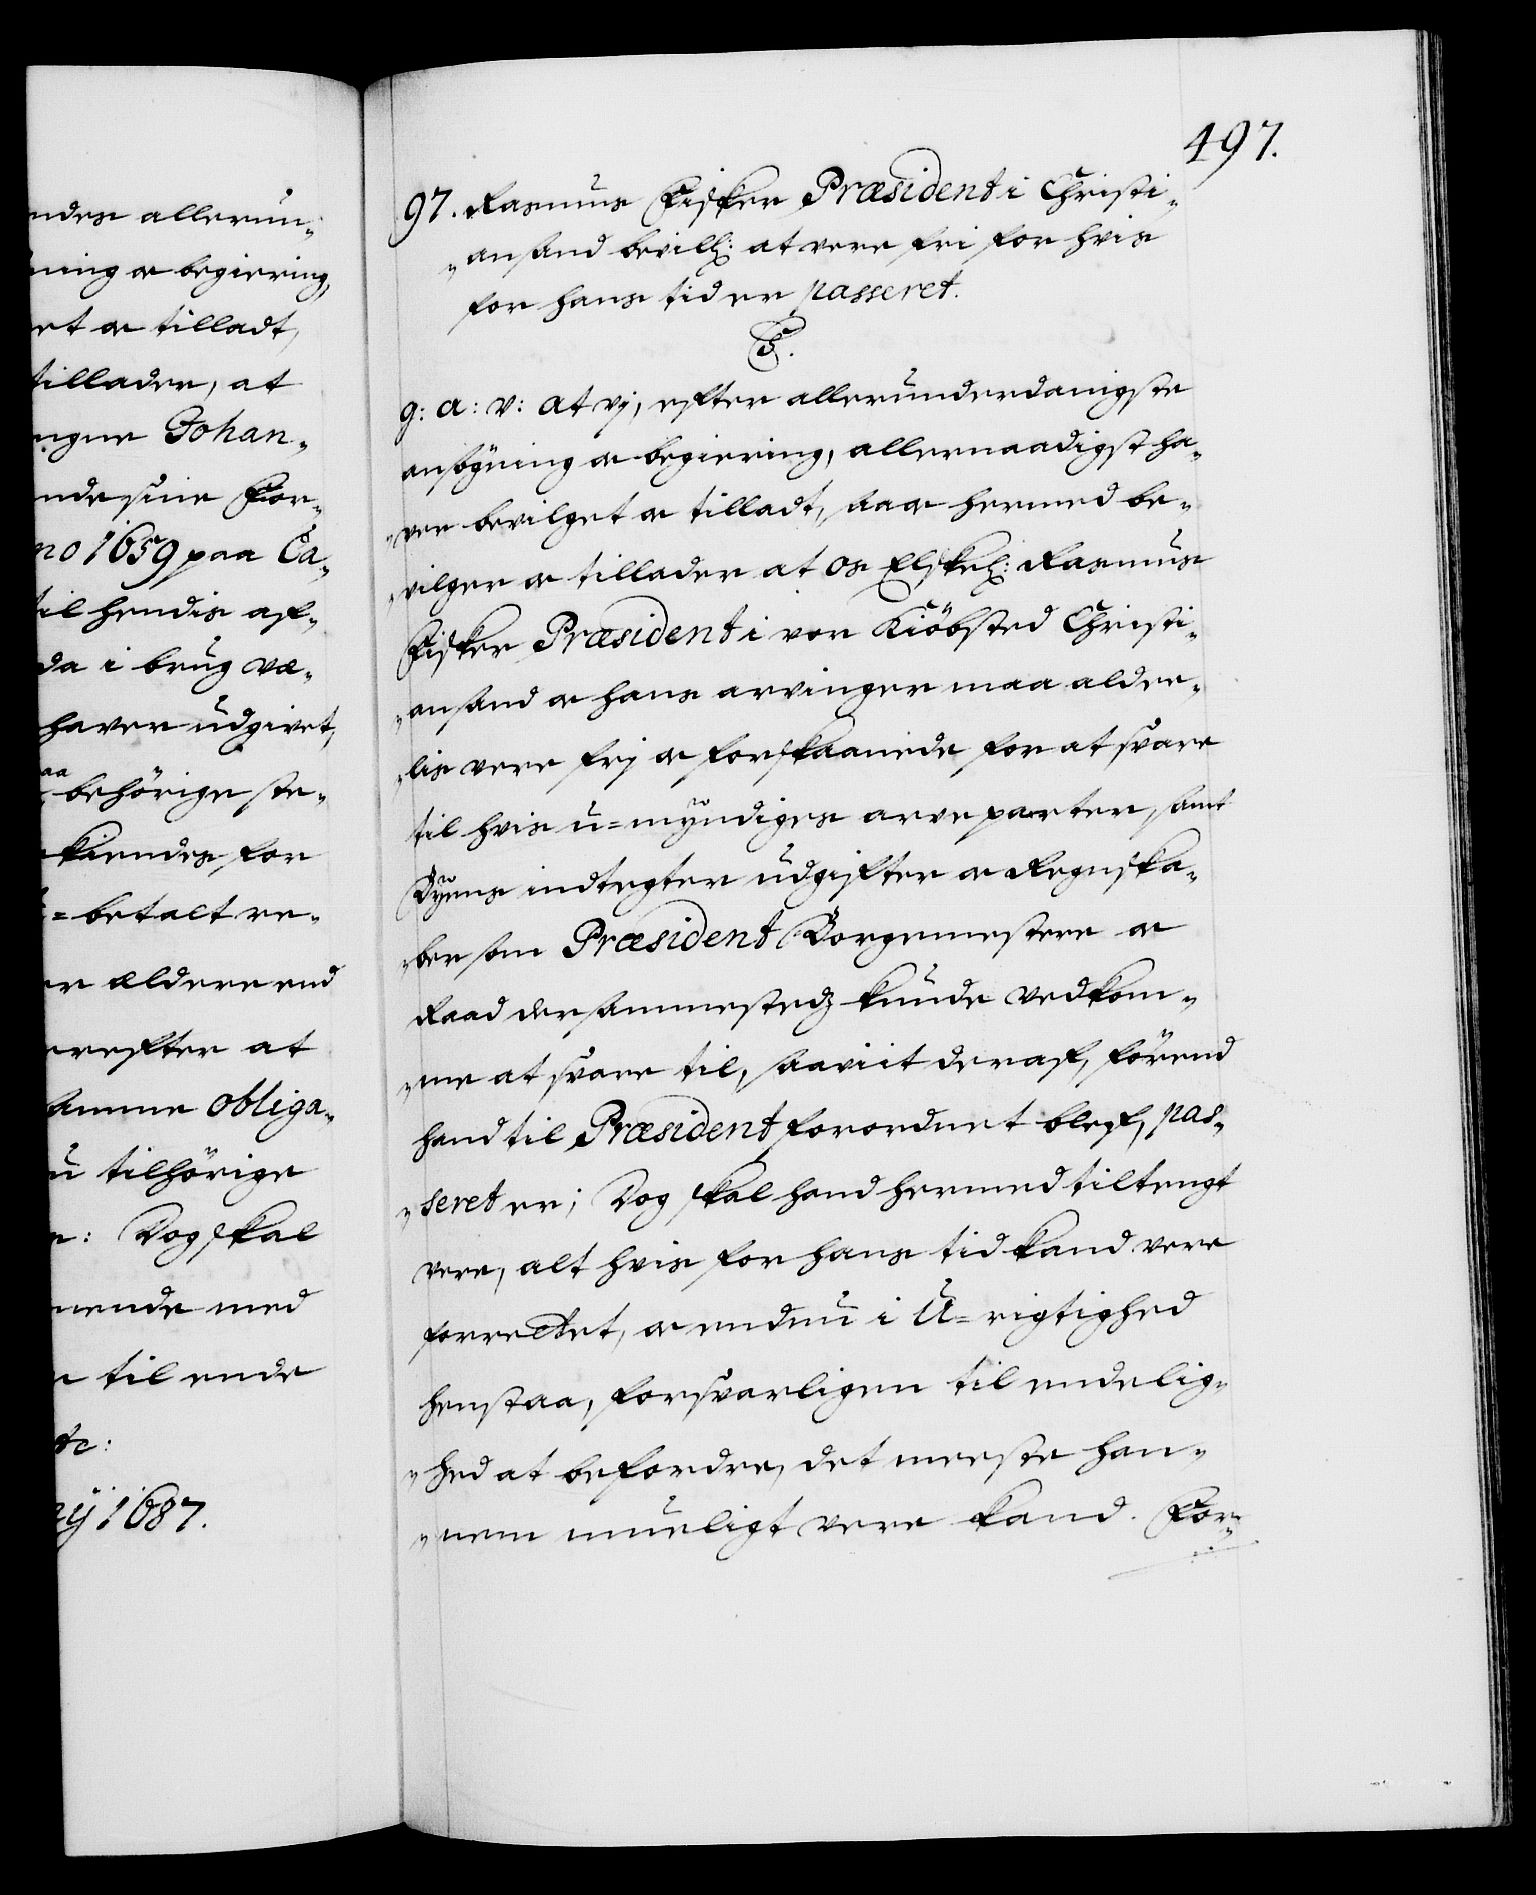 ndes allerun¬
ning oc begiering,
et oc tilladt,
tillader, at
ngne Johan¬
nde sine For¬
no 1659 paa Ca¬
til hendis af¬
da i brug væ¬
haver udgivet,
aa
behörige ste¬
kiendes for
= betalt re¬
er ældere end
erefter at
samme obliga¬
u tilhörige
: Dog skal
mende med
til ende
etc:
ij 1687.
497.
97. Rasmus Fisker Præsident i Christi¬
ansand bevilg: at vere fri for hvis
for hans tid er passeret.
C5.
g: a: v: at vj, efter allerunderdanigste
ansögning oc begiering, allernaadigst ha¬
ver bevilget oc tilladt, saa oc hermed be¬
vilger oc tillader at os Elskel: Rasmus
Fisker Præsident i vor Kiöbsted Christi¬
ansand oc hans arvinger maa aldee¬
lis vere frj oc forskaanede for at svare
til hvis u=myndiges arve parter, samt
Byens indtegter udgifter oc Regnska¬
ber som Præsident Borgemestere oc
Raad dersammestedz kunde vedkom¬
me at svare til, saaviit deraf, förend
hand til Præsident forordnet blef, pas¬
seret er; Dog skal hand hermed tiltengt
vere, alt hvis for hans tid kand vere
forrettet, oc endnu i U=rigtighed
henstaa, forsvarligen til endelig¬
hed at befordre, det meeste han¬
nem mueligt vere kand. For¬